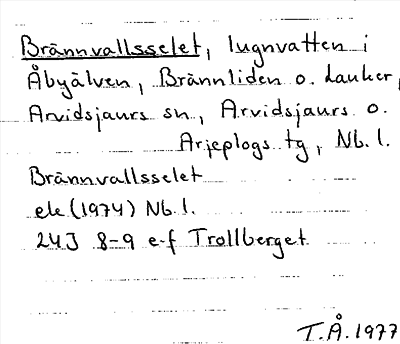 Brännvallsselet, lugnvatten i
Åbyälven, Brännliden o. Lauker,
Arvidsjaurs sn, Arvidsjaurs o.
Arjeplogs tg, Nb. l.
Brännvallsselet
ek (1974) Nb. l.
24J 8-9 e-f Trollberget
T.Å. 1977